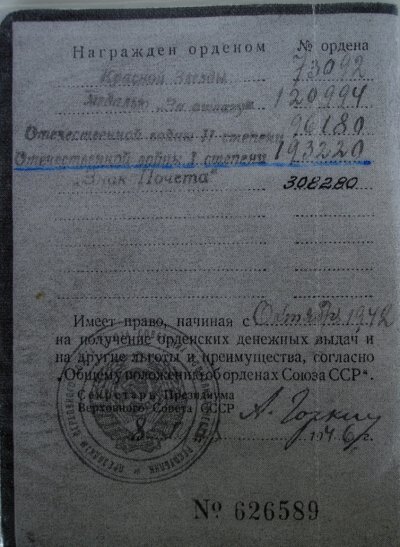 Награжден орденом № ордена
Красной Звезды 73092
Медалью „За отвагу" 120994
Отечественной войны II степени 96180
Отечественной войны I степени 193220
„Знак Почета" 308280
Имеет право, начиная с Октября 1942
на получение орденских денежных выдач и
на другие льготы и преимущества, согласно
„Общему положению об орденах Союза ССР".
Секретарь Президиума
Верховного Совета СССР
А. Горкин
1946 г.
№ 626589